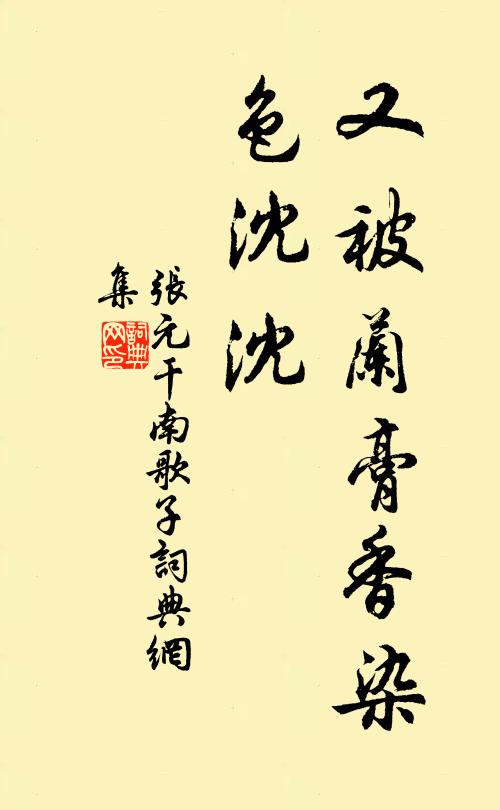 又被蘭膏香染
色沈沈
張元干南歌子詞典網
集
詞典
网印